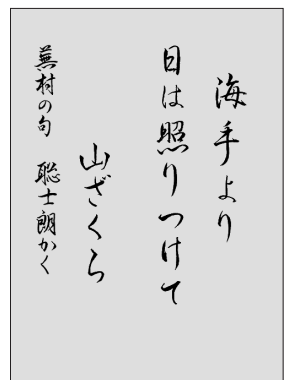 海手より
日は照りつけて
山ざくら
蕪村の句　聡士朗かく